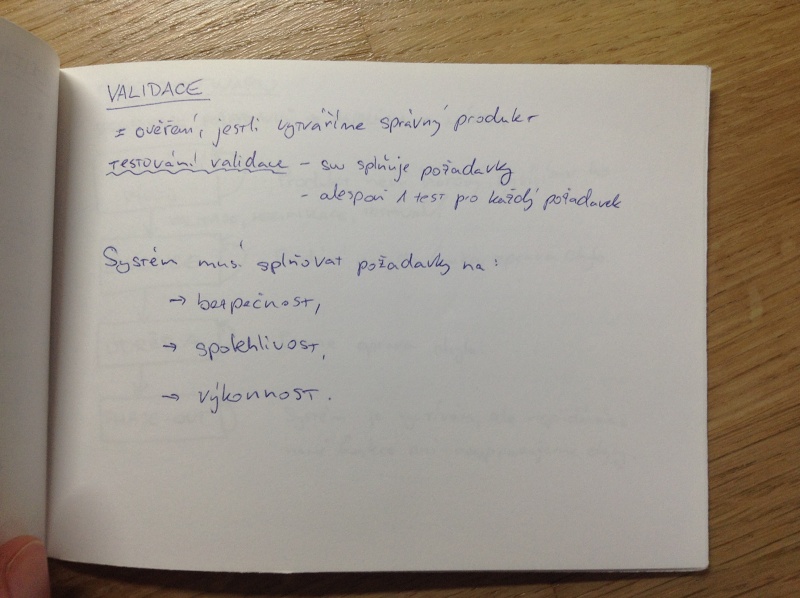 VALIDACE
= ověření, jestli vytváříme správný produkt
testování validace - sw splňuje požadavky
- alespoň 1 test pro každý požadavek
Systém musí splňovat požadavky na:
→ bezpečnost,
→ spolehlivost,
→ výkonnost.